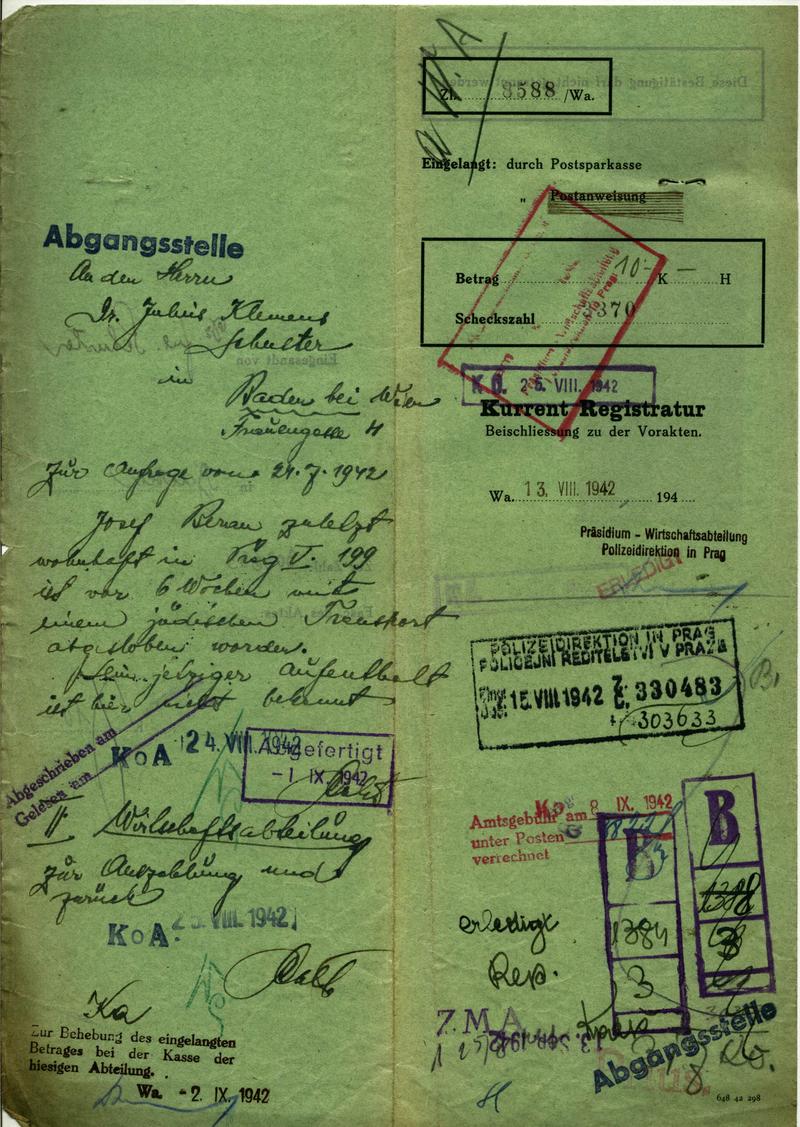 Abgangsstelle
An den Herrn
Dr. Julius Klemens
Schuster
in
Baden bei Wien
Frauengasse 4
Zur Anfrage vom 24.7.1942
Josef Beran zuletzt
wohnhaft in Prag V. 199
ist vor 6 Wochen mit
einem jüdischen Transport
abgeschoben worden.
Sein jetziger Aufenthalt
ist hier nicht bekannt
Abgeschrieben am
Gelesen am
KoA 24. VIII. 1942
Abgefertigt
-1 IX. 1942
II Wirtschaftsabteilung
zur Auszahlung und
zurück
KoA. 25. VIII. 1942
Ka
Zur Behebung des eingelangten
Betrages bei der Kasse der
hiesigen Abteilung.
Wa. -2. IX. 1942
Diese Bestätigung darf nicht getrennt werden
Zl. 8588 /Wa.
Eingelangt: durch Postsparkasse
„ Postanweisung
Betrag 10 - K - H
Scheckszahl 3370
K.O. 25. VIII. 1942
Kurrent Registratur
Beischliessung zu der Vorakten.
Wa. 13. VIII. 1942 194
Präsidium - Wirtschaftsabteilung
Polizeidirektion in Prag
ERLEDIGT
POLIZEIDIREKTION IN PRAG
POLICEJNÍ ŘEDITELSTVÍ V PRAZE
15. VIII 1942 Z. 330483
Č.
303633
Amtsgebühr am 8 IX. 1942
unter Posten
verrechnet
B
B
1318
3
1384
3
erledigt
Rep.
7.MA
13 SEP. 1942
Abgangsstelle
648 42 298